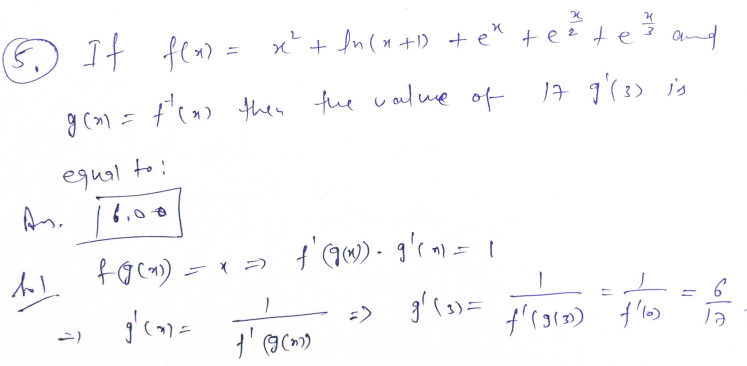 5. If f(x) = x² + ln(x+1) + e^x + e^(x/2) + e^(x/3) and
g(x) = f⁻¹(x) then the value of 17 g'(3) is
equal to :
Ans. 6.00
Sol f(g(x)) = x => f'(g(x)) · g'(x) = 1
=> g'(x) = 1/f'(g(x)) => g'(3) = 1/f'(g(3)) = 1/f'(0) = 6/17.